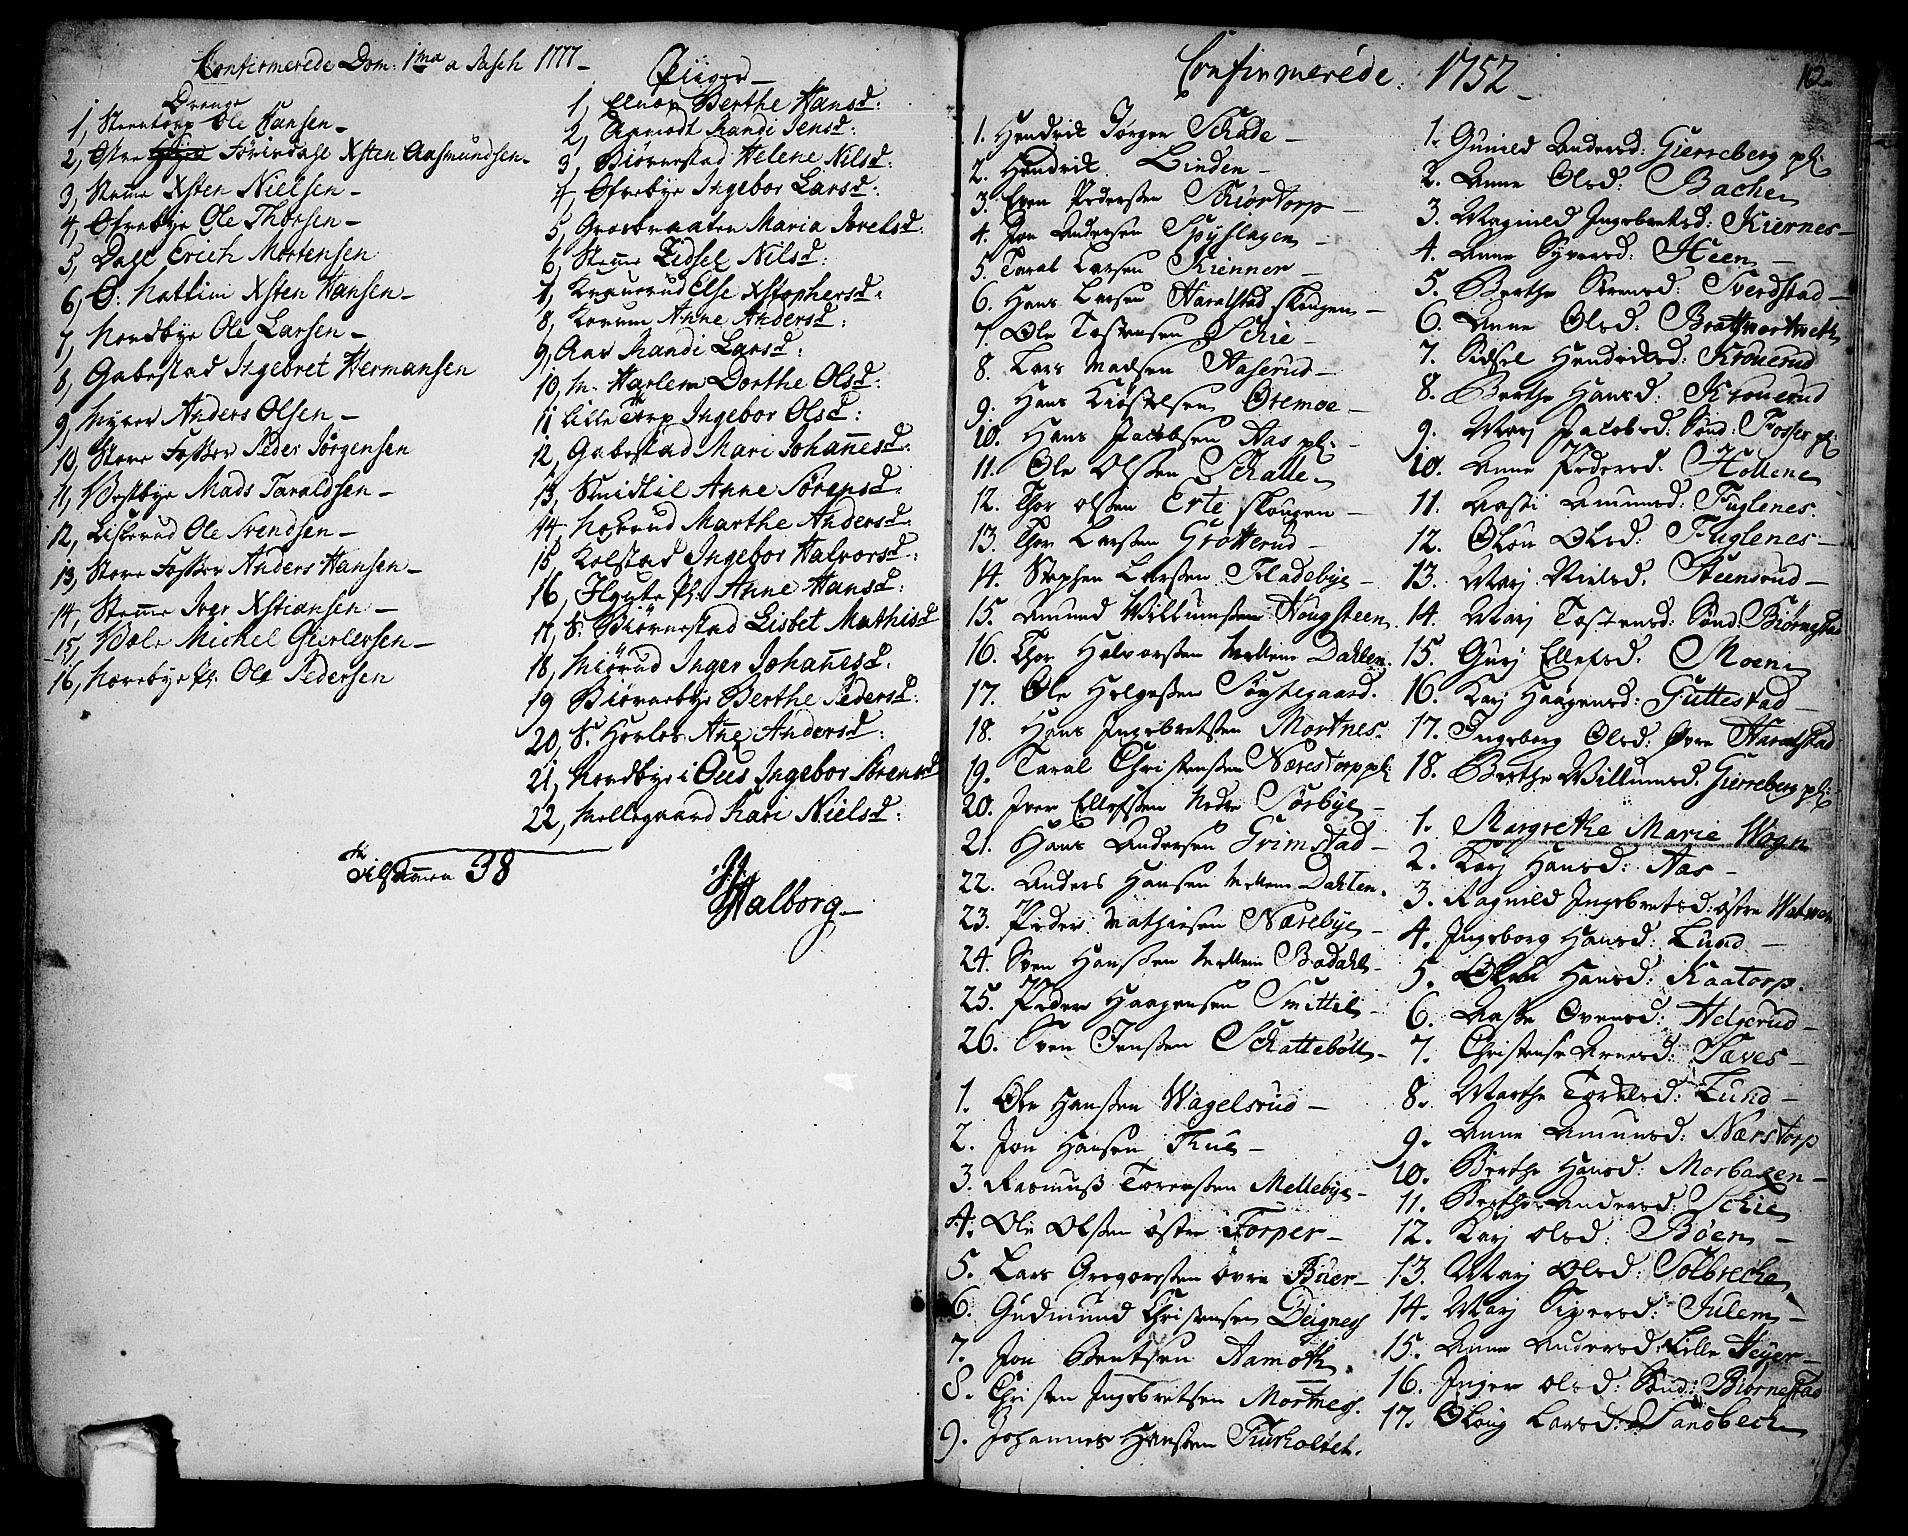 Confirmerede Dom: 1ma a Pasch 1777 –
Drenge
1, Steentorp Ole Hansen –
2, Østre Førindahl Xsten Aasmundsen –
3, Steñe Xsten Nielsen –
4, Øfrebye Ole Thorsen –
5, Dahl Erich Mortensen
6, Ø: Xsten Hansen –
7, Nordbye Ole Larsen –
8, Gabestad Ingebret Hermansen
9, Myrer Anders Olsen –
10, Store Fosser Peder Jørgensen
11, Vestbye Mads Taraldsen –
12, Liskerud Ole Svendsen –
13, Store Fosser Anders Hansen –
14, Steñe Iver Xstiansen –
15, Michel Gurlersen –
16, Nærebye pl: Ole Pedersen
Piiger –
1, Berthe Hansd:
2, Aamodt Randi Jensd:
3, Biørnestad Helene Nilsd:
4, Øfrebye Ingebor Larsd:
5, Grosbraaten Maria
6, Steñe Zidsel Nilsd:
7, Krauerud Else Xstophersd:
8, Korum Anne Andersd:
9, Aas Randi Larsd:
10, N. Harlem Dorthe Olsd:
11 Lille Torp Ingebor Olsd:
12, Gabestad Mari Johañesd:
13, Smidtil Anne Sørensd:
14, Marthe Andersd:
15, Kolstad Ingebor Halvorsd:
16, Pl: Anne Hansd:
17, S: Biørnestad Lisbet Mathisd
18, Miørud Inger Johañesd:
19 Biørnebye Berthe Pedersd:
20, S. Ane Andersd:
21, Nordbye i Ous Ingebor Sørensd
22, Mellegaard Kari Nielsd:
Tilsammen 38
Halborg –
Confirmerede: 1752 –
162
1. Hendrik Jørgen Schade –
2. Hendrik Linden –
3. Even Pedersen Skiørtorp –
4. Jon Andersen Spydslagen –
5. Taral Larsen Kienner –
6. Hans Larsen Haralstad skougen –
7. Ole Tostensen Schie –
8. Lars Madsen Haserud –
9. Hans Kiøstelsen Oremoe –
10. Hans Jacobsen Aas pl: –
11. Ole Olsen Schalle
12. Thor Olsen Erte skougen –
13. Thor Larsen Grotterud –
14. Stephen Larsen Fladebye –
15. Amund Willumsen Hougsteen
16. Thor Halvorsen Mellem Dahlen.
17. Ole Helgesen
18. Hans Ingebretsen Mortnes.
19. Taral Christensen Nærestorp pl:
20. Iver Ellefsen Nedre Sørbye –
21. Hans Andersen Grimstad –
22. Anders Hansen Mellem Dahlen.
23. Peder Mathisen Nærebye –
24. Sven Hansen Mellem Bodahl –
25. Peder Haagensen Smittil –
26. Sven Jensen Schattebøll –
1. Ole Hansen Wagelsrud –
2. Jon Hansen Thue –
3. Rasmus Torersen Mellebye –
4. Ole Olsen østre Torper –
5. Lars Gregorsen øvre Buer –
6. Gudmund Christensen Deignes
7. Jon Bentsen Aamoth.
8. Christen Ingebretsen Mortnes.
9. Johannes Hansen Turholtet.
1. Gunild Andersd: Gierreberg pl:
2. Anne Olsd: Bachen
3. Magnild Ingebretsd: Kiernes –
4. Anne Syversd: Heen –
5. Berthe Sørensd: Sverdstad –
6. Anne Olsd:
7. Sidsel Hendriksd: Krouerud
8. Berthe Hansd: Krouerud
9. Marj Jacobsd: Sønd: Fosser pl:
10. Anne Pedersd. Hollene
11. Aasti Amunsd: Fuglenes.
12. Oloug Olsd: Fuglenes –
13. Marj Nielsd. Steensrud –
14. Marj Tostensd: Sønd: Biørnestad
15. Gurj Ellefsd. Moen
16. Karj Haagensd: Guttestad –
17. Ingeborg Olsd: øvre Haralstad
18. Berthe Willumsd. Gierreberg pl:
1. Margrethe Marie Wogn
2. Karj Hansd: Aas –
3. Ragnild Ingebretsd: østre
4. Ingeborg Hansd: Lund –
5. Hansd: Kaatorp.
6. Aasse Evensd: Helgerud –
7. Christense Arnesd: Tæves –
8. Marthe Torelsd: Lund –
9. Anne Amunsd: Nærstorp
10. Berthe Hansd: Morbaken –
11. Berthe Andersd: Schie
12. Karj Olsd: Bøen –
13. Marj Olsd: Solbrecha
14. Marj Sifversd: Julem –
15. Anne Andersd: Lille Heyer –
16. Inger Olsd: Sønd: Biørnestad
17. Oloug Larsd: Sandbech